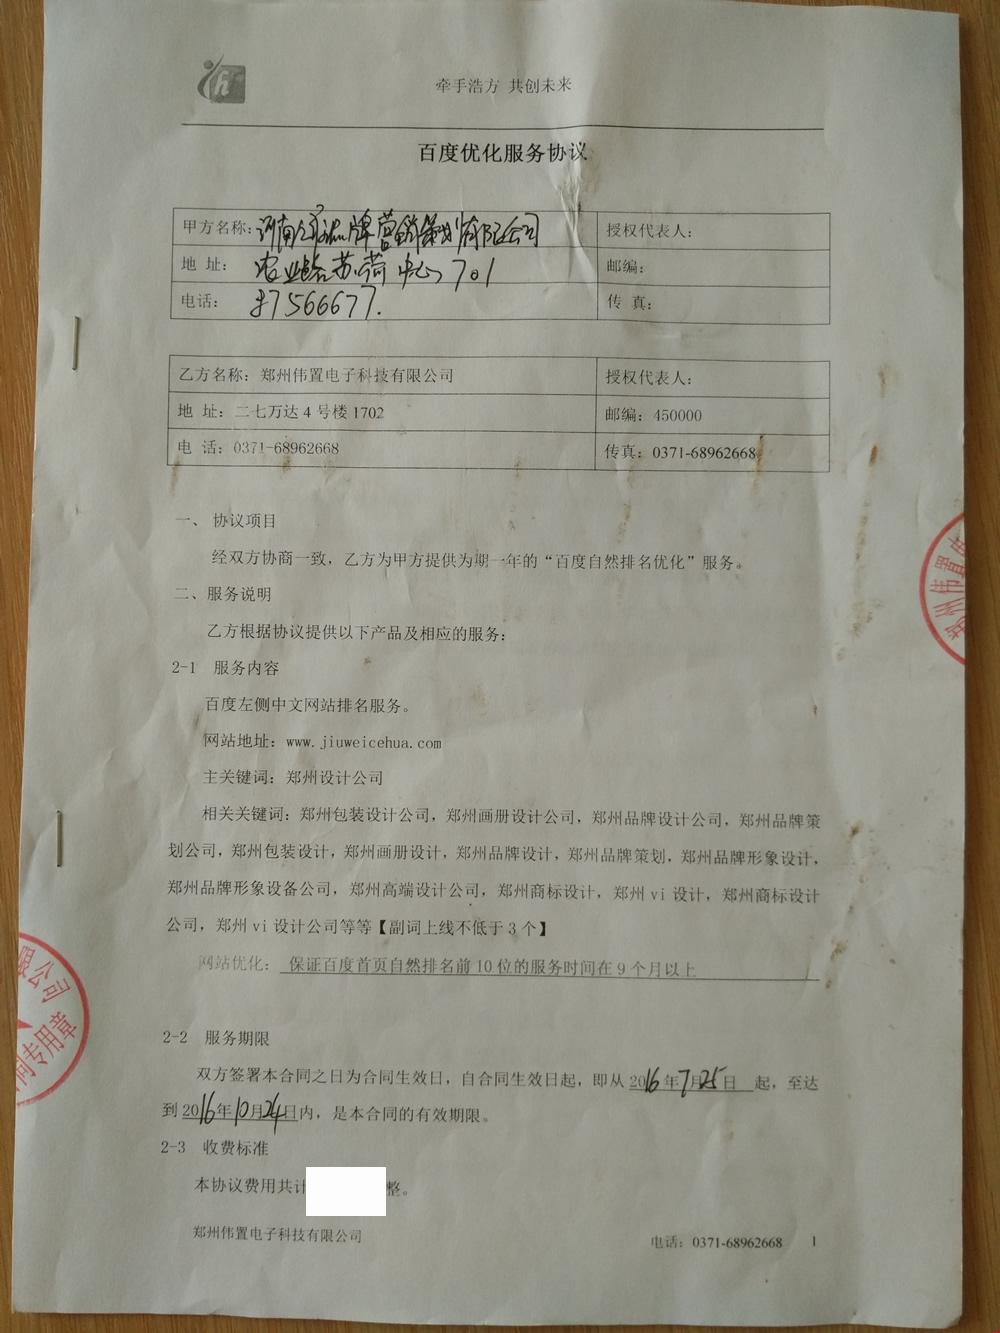 牵手浩方 共创未来
百度优化服务协议
甲方名称：河南 品牌营销策划有限公司
授权代表人：
地 址：农业路苏荷中心701
邮编：
电话：37566677.
传 真：
乙方名称：郑州伟置电子科技有限公司
授权代表人：
地 址：二七万达4号楼1702
邮编：450000
电 话：0371-68962668
传真：0371-68962668
一、 协议项目
经双方协商一致，乙方为甲方提供为期一年的“百度自然排名优化”服务。
二、服务说明
乙方根据协议提供以下产品及相应的服务：
2-1 服务内容
百度左侧中文网站排名服务。
网站地址：www.jiuweicehua.com
主关键词：郑州设计公司
相关关键词：郑州包装设计公司，郑州画册设计公司，郑州品牌设计公司，郑州品牌策
划公司，郑州包装设计，郑州画册设计，郑州品牌设计，郑州品牌策划，郑州品牌形象设计，
郑州品牌形象设备公司，郑州高端设计公司，郑州商标设计，郑州vi设计，郑州商标设计
公司，郑州vi设计公司等等【副词上线不低于3个】
网站优化： 保证百度首页自然排名前10位的服务时间在9个月以上
2-2 服务期限
双方签署本合同之日为合同生效日，自合同生效日起，即从2016年7月25日 起，至达
到2016年10月24日内，是本合同的有效期限。
2-3 收费标准
本协议费用共计 整。
郑州伟置电子科技有限公司
电话：0371-68962668 1
郑州伟置电
限公司
同专用章